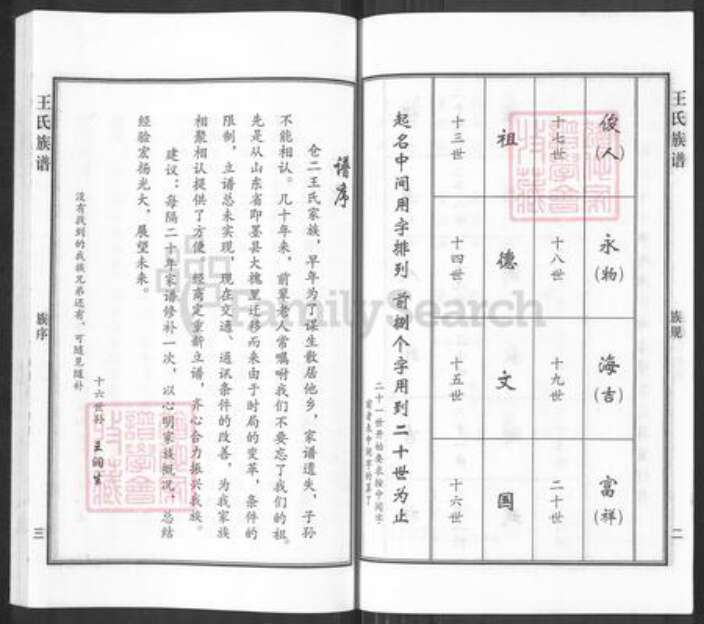 王氏族谱
族规
二
俊(人) 永(物) 海(吉) 富(祥)
十七世 十八世 十九世 二十世
祖 德 文 国
十三世 十四世 十五世 十六世
起名中间用字排列 前捌个字用到二十世为止
二十一世开始要求按中间字
王氏族谱
族序
三
谱序
仓二王氏家族，早年为了谋生散居他乡，家谱遗失，子孙
不能相认。几十年来，前辈老人常嘱咐我们不要忘了我们的祖。
先是从山东省即墨县大槐里迁移而来由于时局的变革，条件的
限制，立谱总未实现，现在交通、通讯条件的改善，为我家族
相聚相认提供了方便，经商定重新立谱，齐心合力振兴我族。
建议：每隔二十年家谱修补一次，以心明家族概况，总结
经验宏扬光大，展望未来。
没有找到的我族兄弟还有，可随见随补
十六世孙 王润生
FamilySearch